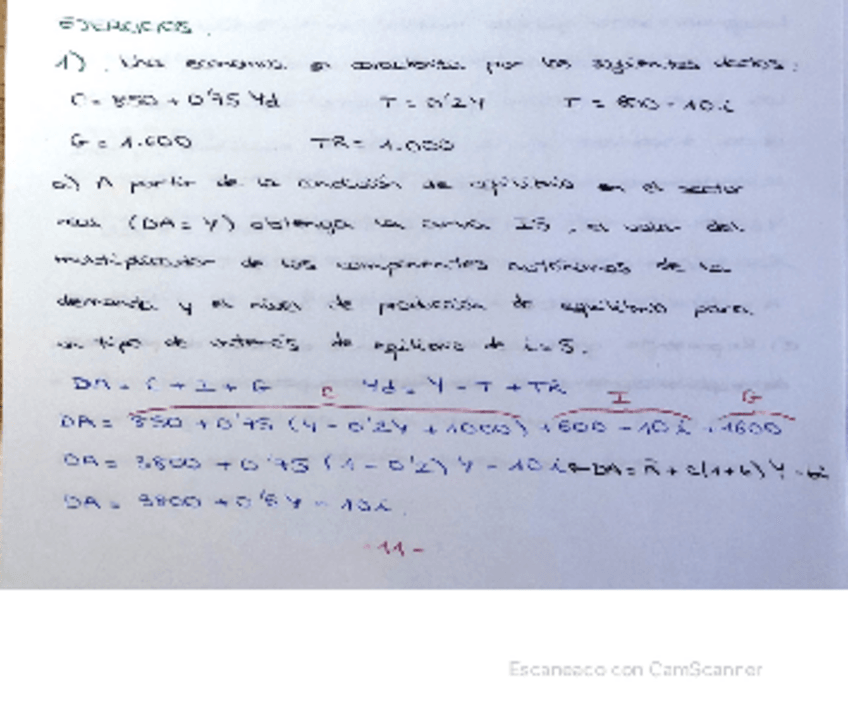 EJERCICIOS.
1). Una economía se caracteriza por los siguientes datos:
C = 850 + 0'75 Yd T = 0'2Y I = 600 - 10i
G = 1.600 TR = 1.000
a) A partir de la condición de equilibrio en el sector
real (DA = Y) obtenga la curva IS, el valor del
multiplicador de los componentes autónomos de la
demanda y el nivel de producción de equilibrio para
un tipo de interés de equilibrio de i = 5.
DA = C + I + G Yd = Y - T + TR
C I G
DA = 850 + 0'75 (Y - 0'2Y + 1000) + 600 - 10i + 1600
DA = 3800 + 0'75 (1 - 0'2) Y - 10i ← DA = Ā + c(1+t) Y - bi
DA = 3800 + 0'6 Y - 10i.
- 11 -
Escaneado con CamScanner